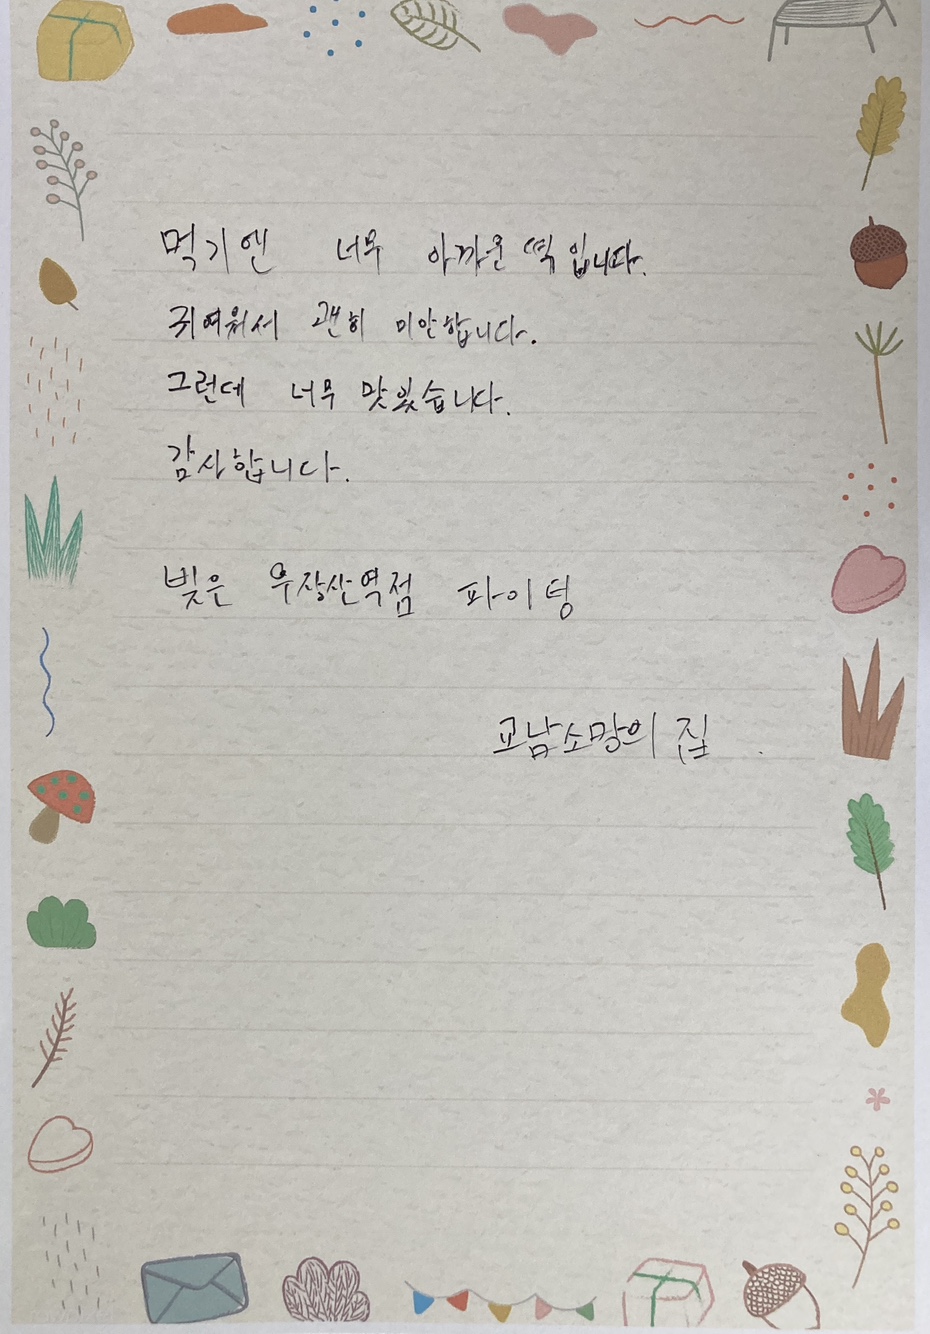 먹기엔 너무 아까운 떡입니다.
귀여워서 괜히 미안합니다.
그런데 너무 맛있습니다.
감사합니다.
빚은 우장산역점 파이팅
교남소망의 집.